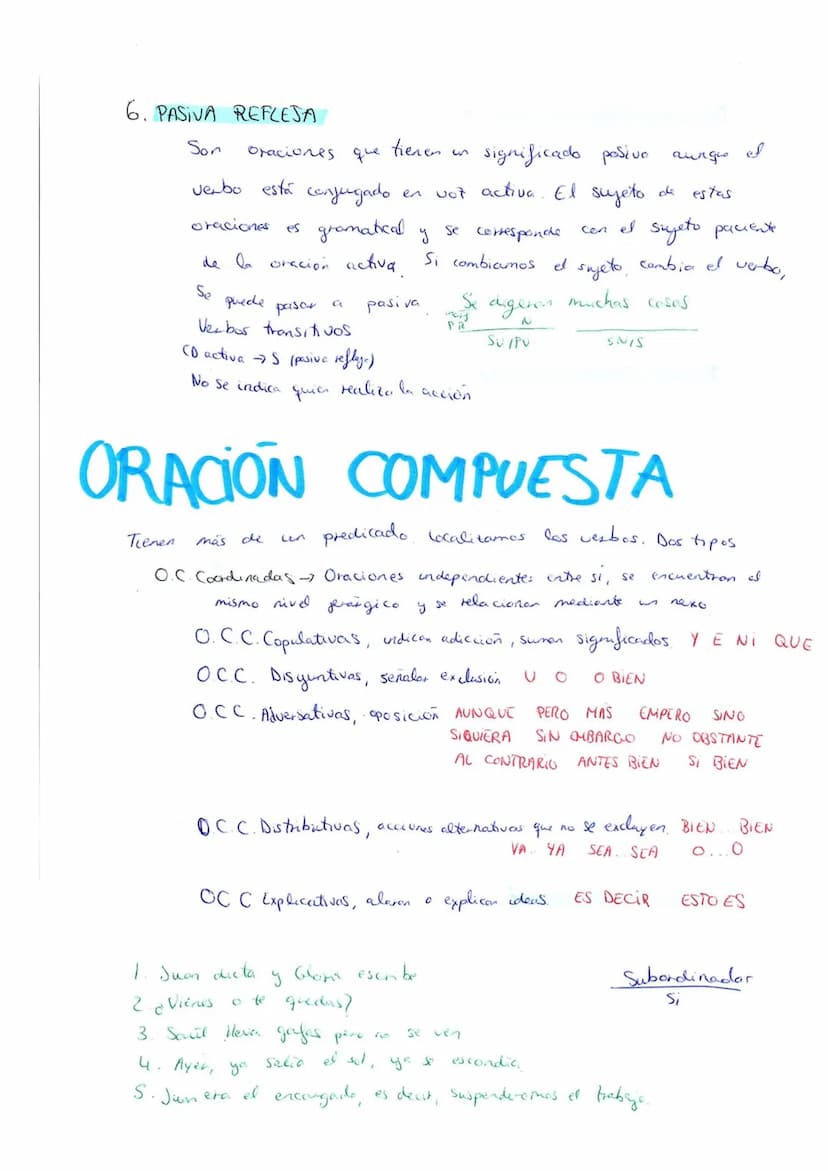 6. PASIVA REFLEJA
Son oraciones que tienen un significado pasivo aunque el
verbo está conjugado en voz activa. El sujeto de estas
oraciones es gramatical y se corresponde con el sujeto paciente
de la oración activa. Si cambiamos el sujeto, cambia el verbo,
Se puede pasar a pasiva. Se digeron muchas cosas
PR N
Verbos transitivos
SV/PV SN/S
CD activa → S (pasiva refleja)
No se indica quien realiza la acción
ORACIÓN COMPUESTA
Tienen más de un predicado, localizamos los verbos. Dos tipos
O.C. Coordinadas → Oraciones independientes entre sí, se encuentran al
mismo nivel jerárgico y se relacionan mediante un nexo
O.C.C. Copulativas, indican adicción, suman significados Y E NI QUE
O.C.C. Disyuntivas, señalan exclusión U O O BIEN
O.C.C. Adversativas, oposición AUNQUE PERO MAS EMPERO SINO
SIQUIERA SIN EMBARGO NO OBSTANTE
AL CONTRARIO ANTES BIEN SI BIEN
O.C.C. Distributivas, acciones alternativas que no se excluyen BIEN... BIEN
YA.. YA SEA.. SEA O...O
OCC Explicativas, aclaran o explican ideas ES DECIR ESTO ES
1. Juan dicta y Gloria escribe
Subordinador
2. ¿Vienes o te quedas?
Si
3. Saúl lleva gafas pero no se ven
4. Ayer, ya salía el sol, ya se escondía
5. Juan era el encargado, es decir, suspenderemos el trabajo.